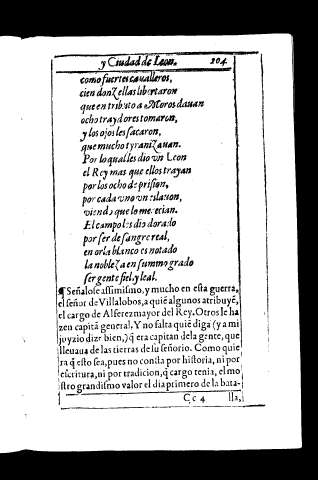 y Ciudad de Leon. 204
como fuertes cavalleros,
cien donzellas libertaron
que en tributo a Moros dauan
ocho traydores tomaron,
y los ojos les sacaron,
que mucho tyranizauan.
Por lo qual les dio vn Leon
el Rey mas que ellos trayan
por los ocho de prision,
por cada vno vn eslauon,
viendo que lo merecian.
El campo les dio dorado
por ser de sangre real,
en orla blanco es notado
la nobleza en summo grado
ser gente fiel y leal.
¶ Señalose assimismo, y mucho en esta guerra,
el señor de Villalobos, a quiẽ algunos atribuyẽ,
el cargo de Alferez mayor del Rey. Otros le ha
zen capitã general. Y no falta quiẽ diga (y a mi
juyzio dize bien,) q̃ era capitan dela gente, que
lleuaua de las tierras de su señorio. Como quie
ra q̃ esto sea, pues no consta por historia, ni por
escritura, ni por tradicion, q̃ cargo tenia, el mo
stro grandissimo valor el dia primero de la bata-
Cc 4 lla,